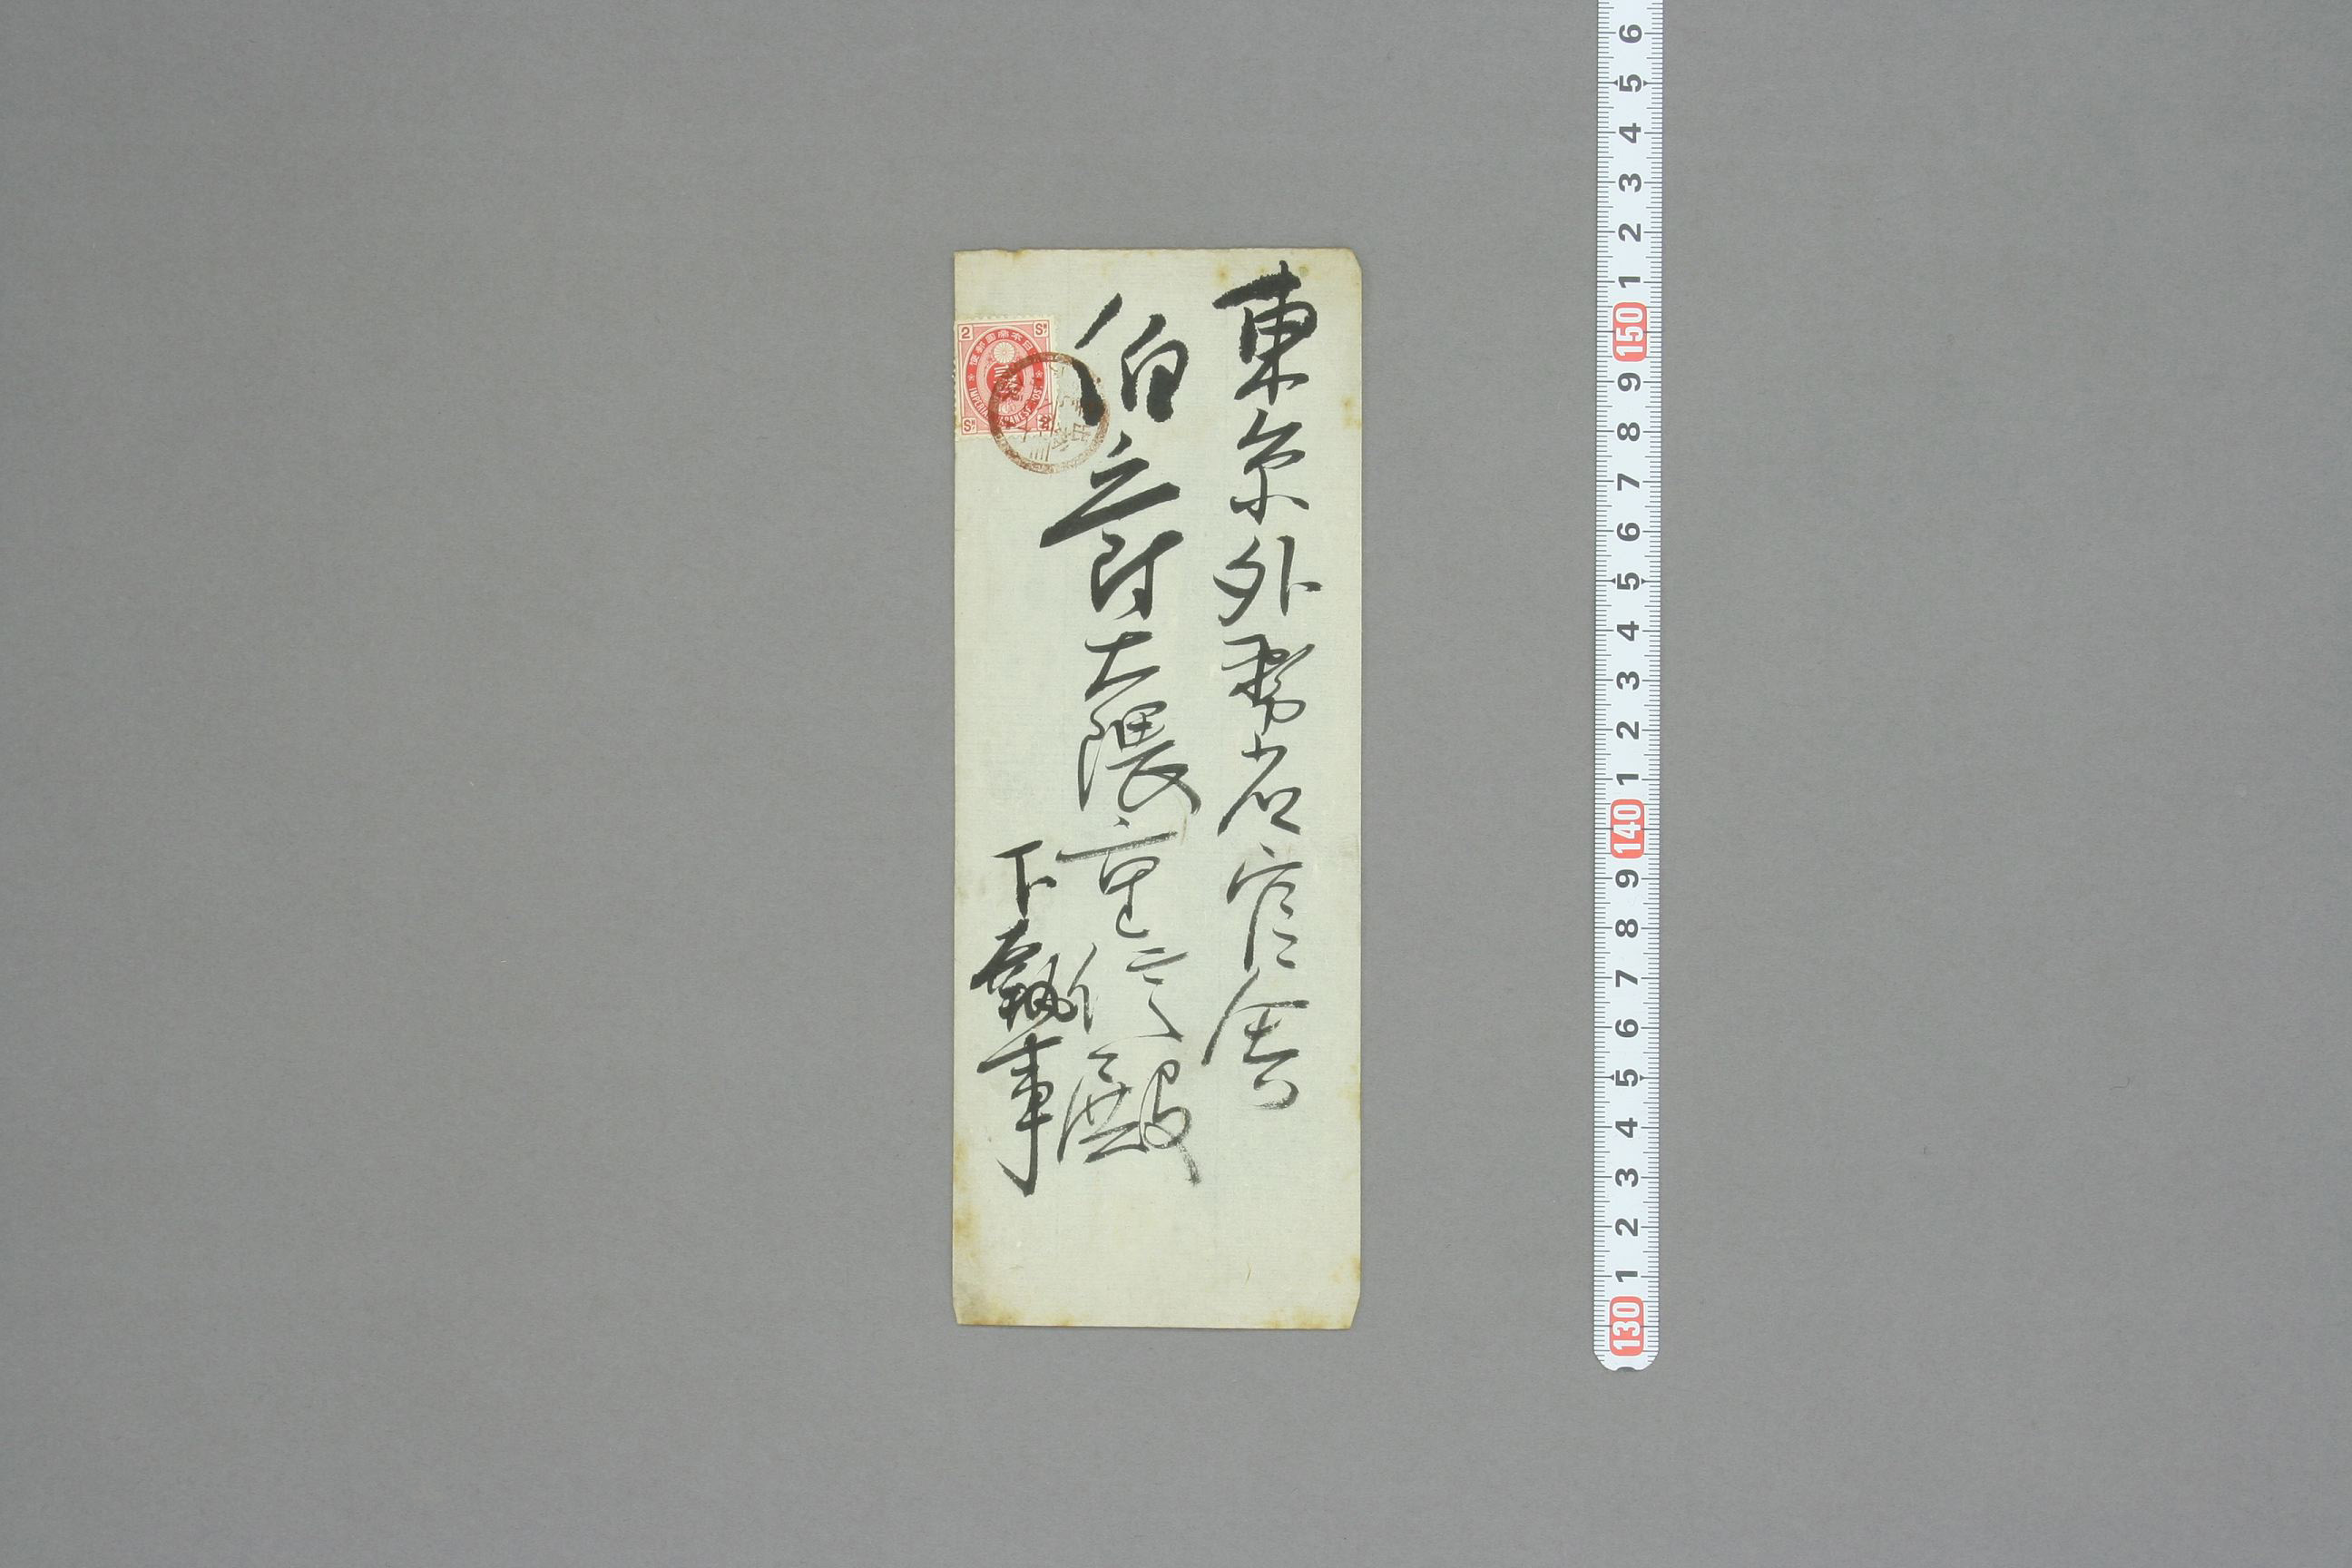 東京外務省官舎
伯爵大隈重信殿
下執事
2 Sn
大日本帝国郵便
IMPERIAL JAPANESE POST
Sn 2
6
5
4
3
2
1
150
9
8
7
6
5
4
3
2
1
140
9
8
7
6
5
4
3
2
1
130